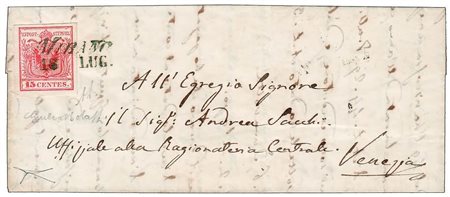 MIRANO
16 LUG.
15 CENTES.
All' Egregio Signore
il Sigr: Andrea Sacchi
Uffiziale alla Ragionateria Centrale
Venezia